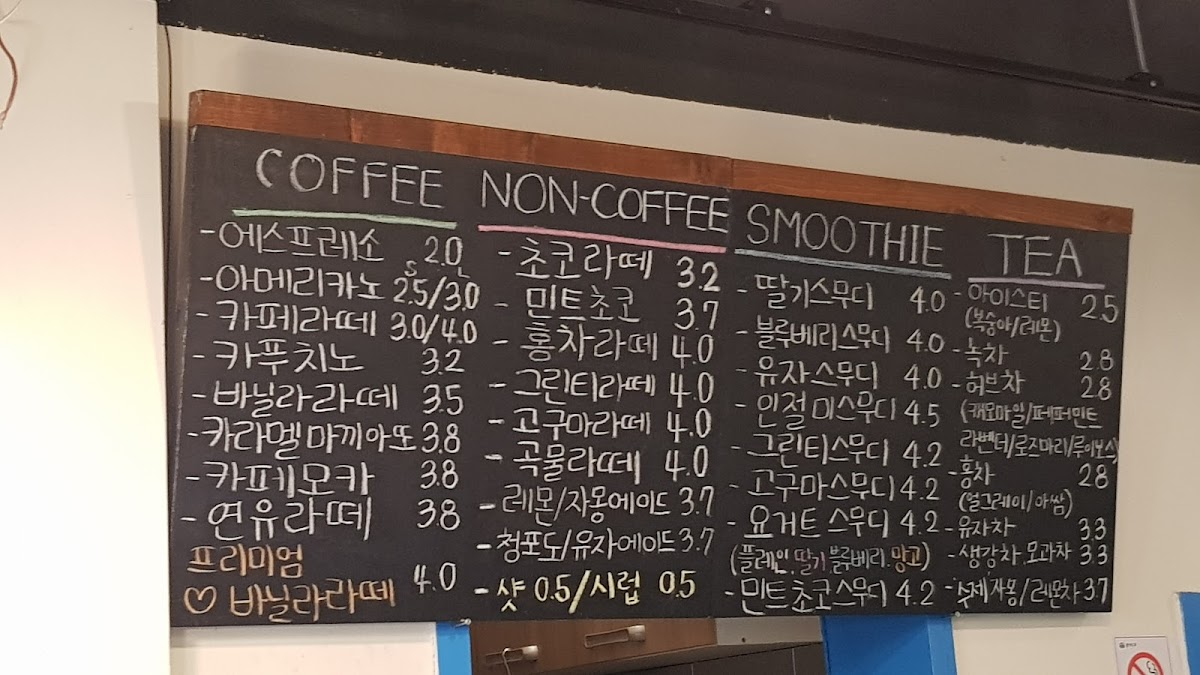 COFFEE
-에스프레소 2.0
S L
-아메리카노 2.5/3.0
-카페라떼 3.0/4.0
-카푸치노 3.2
-바닐라라떼 3.5
-카라멜마끼아또 3.8
-카페모카 3.8
-연유라떼 3.8
프리미엄
♡ 바닐라라떼 4.0
NON-COFFEE
-초코라떼 3.2
-민트초코 3.7
-홍차라떼 4.0
-그린티라떼 4.0
-고구마라떼 4.0
-곡물라떼 4.0
-레몬/자몽에이드 3.7
-청포도/유자에이드 3.7
-샷 0.5/시럽 0.5
SMOOTHIE
-딸기스무디 4.0
-블루베리스무디 4.0
-유자스무디 4.0
-인절미스무디 4.5
-그린티스무디 4.2
-고구마스무디 4.2
-요거트스무디 4.2
(플레인.딸기.블루베리.망고)
-민트초코스무디 4.2
TEA
-아이스티 2.5
(복숭아/레몬)
-녹차 2.8
-허브차 2.8
(캐모마일/페퍼민트
라벤더/로즈마리/루이보스)
-홍차 2.8
(얼그레이/아쌈)
-유자차 3.3
-생강차.모과차 3.3
-수제자몽/레몬차 3.7